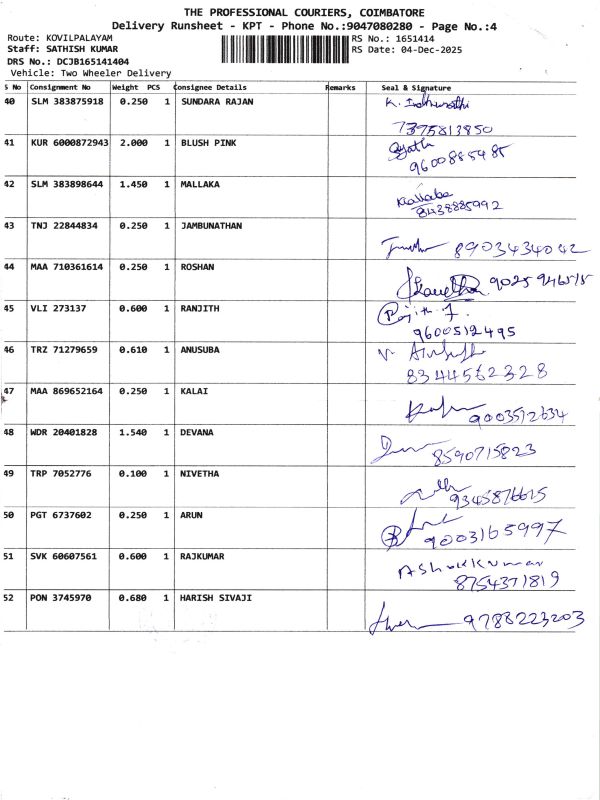 THE PROFESSIONAL COURIERS, COIMBATORE
Delivery Runsheet - KPT - Phone No.:9047080280 - Page No.:4
Route: KOVILPALAYAM RS No.: 1651414
Staff: SATHISH KUMAR RS Date: 04-Dec-2025
DRS No.: DCJB165141404
Vehicle: Two Wheeler Delivery
S No Consignment No Weight PCS Consignee Details Remarks Seal & Signature
40 SLM 383875918 0.250 1 SUNDARA RAJAN
7375813850
41 KUR 6000872943 2.000 1 BLUSH PINK
9600885485
42 SLM 383898644 1.450 1 MALLAKA
8438885992
43 TNJ 22844834 0.250 1 JAMBUNATHAN
8903434042
44 MAA 710361614 0.250 1 ROSHAN
45 VLI 273137 0.600 1 RANJITH
9600512495
46 TRZ 71279659 0.610 1 ANUSUBA
8344562328
47 MAA 869652164 0.250 1 KALAI
9003512634
48 WDR 20401828 1.540 1 DEVANA
8590715823
49 TRP 7052776 0.100 1 NIVETHA
9345876615
50 PGT 6737602 0.250 1 ARUN
9003165997
51 SVK 60607561 0.600 1 RAJKUMAR
AShokkumar
8754371819
52 PON 3745970 0.680 1 HARISH SIVAJI
9788223203